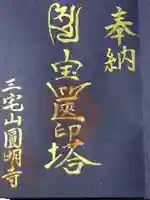 奉納
宝篋印塔
三宅山圓明寺